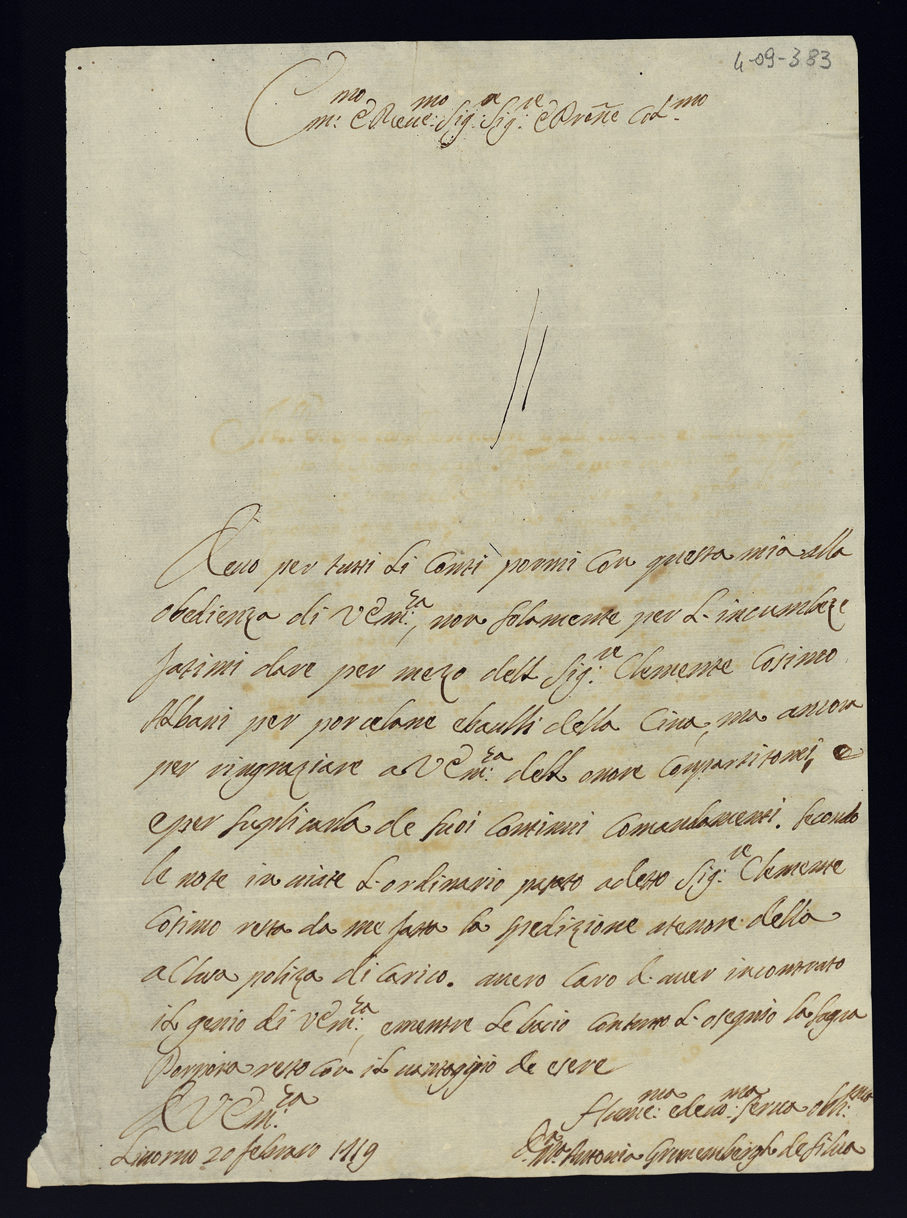 4-09-383
Em:mo e Reue:mo Sig:re Sig:re e Prone Col:mo
Deuo per tutti li Conti pormi con questa mia alla
obedienza di V Em:za, non solamente per l'incumbeze
fatimi dare per mezo dell Sig:re Clemente Cosimo
Albani per porcelane ebaulli della Cina, ma ancora
per ringraziare a V Em:za dell onore Compartitomi, e
eper suplicarla de suoi continui Comandamenti. secondo
le note in uiate l'ordinario pasato a detto Sig:re Clemente
Cosimo resta da me fatta la spedizione atenore della
acclusa poliza di carico. auero caro d'auer incontrato
il genio di V Em:za, ementre le bacio con tutto l'osequio la Sagra
Porpora resto con il uantaggio de esere
D V Em:za
Liuorno 20 febraro 1719
Hume:ma e deuo:ma serua obli:ma
D:na M:a Antonia Grunembergh de Silua